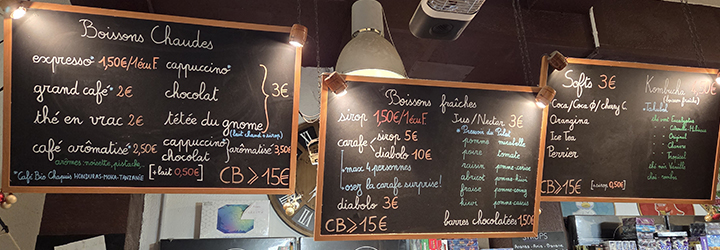 Boissons Chaudes
expresso* 1,50€/1éuF
grand café* 2€
thé en vrac 2€
café aromatisé* 2,50€
arômes noisette, pistache,
*Café Bio Chiapas HONDURAS-MOKA-TANZANIE
cappuccino*
chocolat
tétée du gnome
(lait chaud + sirop)
3€
cappuccino*
chocolat
aromatisé 3,50€
[+lait 0,50€]
CB ≥ 15€
Boissons fraîches
sirop 1,50€/1éuF
carafe sirop 5€
diabolo 10€
max 4 personnes
osez la carafe surprise!
diabolo 3€
CB ≥ 15€
Jus/Nectar 3€
pomme mirabelle
poire tomate
raisin pomme-cerise
abricot pomme-kiwi
fraise pomme-coing
pêche pomme-cassis
barres chocolatées 1,50€
Softs 3€
Coca/Coca Ø/cherry C
Orangina
Ice Tea
Perrier
CB ≥ 15€
[+sirop 0,50€]
Kombucha
Original
Tropical
thé noir Vanille